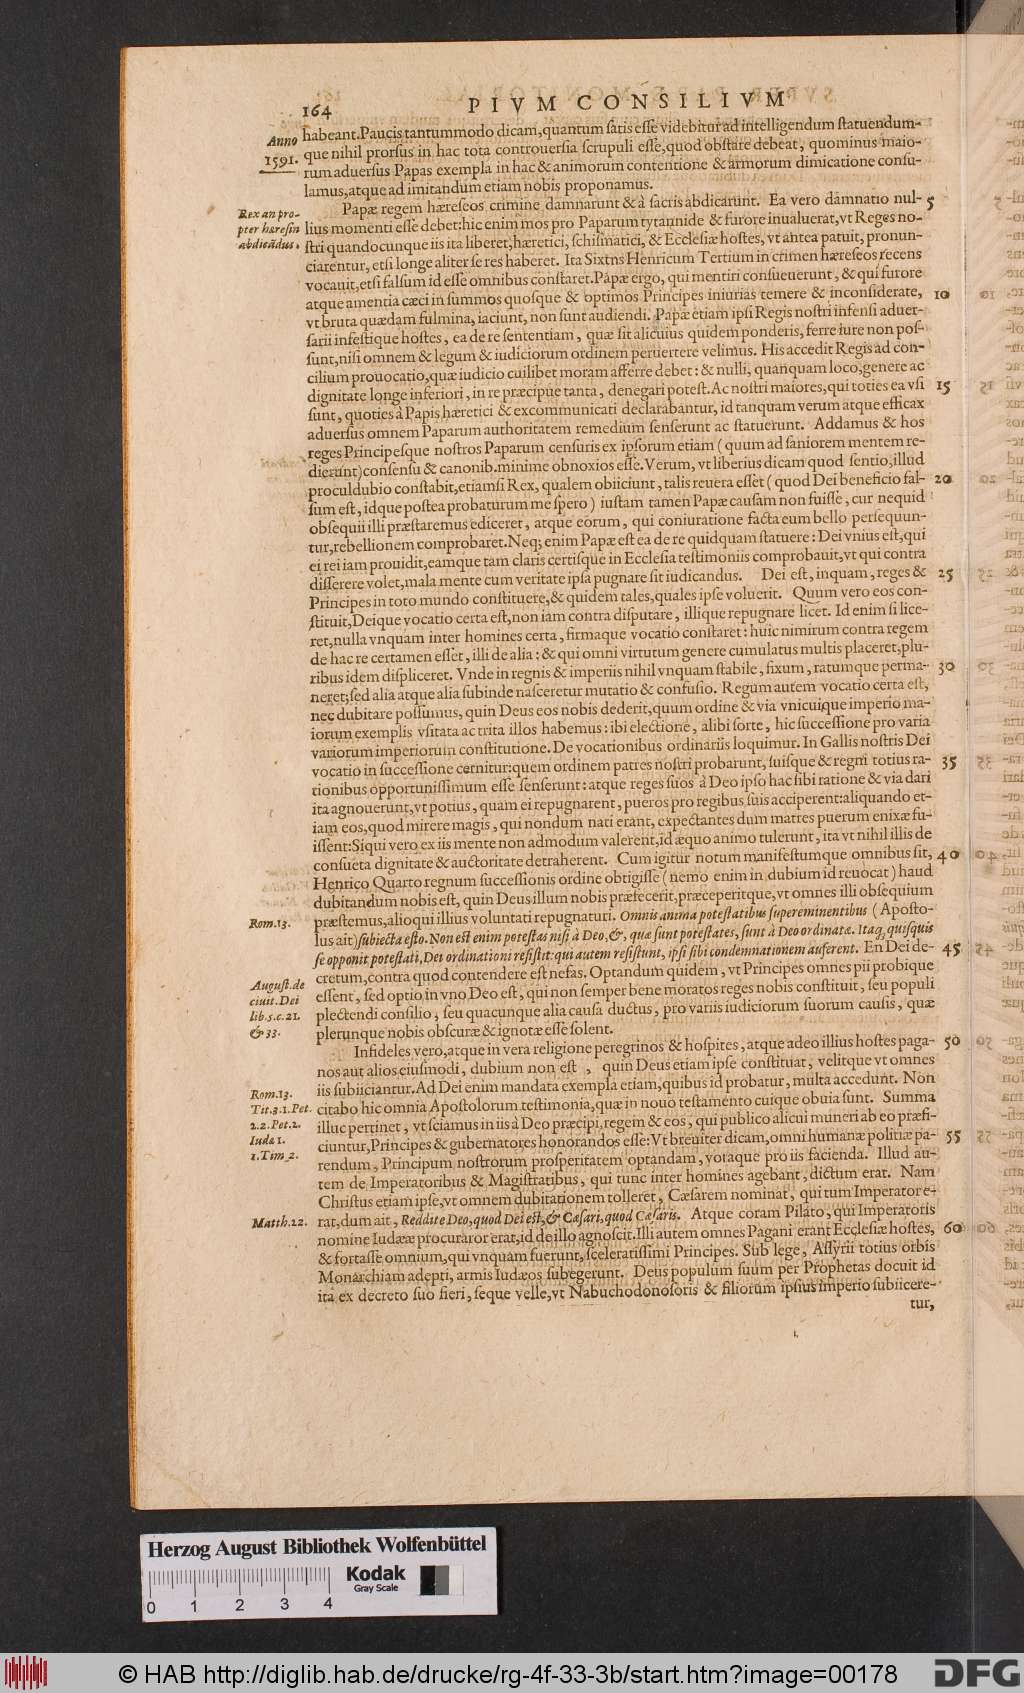 164 PIVM CONSILIVM
Anno
1591.
habeant. Paucis tantummodo dicam, quantum satis esse videbitur ad intelligendum statuendum-
que nihil prorsus in hac tota controuersia scrupuli esse, quod obstare debeat, quominus maio-
rum aduersus Papas exempla in hac & animorum contentione & armorum dimicatione consu-
lamus, atque ad imitandum etiam nobis proponamus.
Rex an pro-
pter hæresin
abdicādus.
Papæ regem hæreseos crimine damnarunt & à sacris abdicarunt. Ea vero damnatio nul- 5
lius momenti esse debet: hic enim mos pro Paparum tyrannide & furore inualuerat, vt Reges no-
stri quandocunque iis ita liberet, hæretici, schismatici, & Ecclesiæ hostes, vt antea patuit, pronun-
ciarentur, etsi longe aliter se res haberet. Ita Sixtns Henricum Tertium in crimen hæreseos recens
vocauit, etsi falsum id esse omnibus constaret. Papæ ergo, qui mentiri consueuerunt, & qui furore
atque amentia cæci in summos quosque & optimos Principes iniurias temere & inconsiderate, 10
vt bruta quædam fulmina, iaciunt, non sunt audiendi. Papæ etiam ipsi Regis nostri infensi aduer-
sarii infestique hostes, ea de re sententiam, quæ sit alicuius quidem ponderis, ferre iure non pos-
sunt, nisi omnem & legum & iudiciorum ordinem peruertere velimus. His accedit Regis ad con-
cilium prouocatio, quæ iudicio cuilibet moram afferre debet: & nulli, quanquam loco, genere ac
dignitate longe inferiori, in re præcipue tanta, denegari potest. Ac nostri maiores, qui toties ea vsi 15
sunt, quoties à Papis hæretici & excommunicati declarabantur, id tanquam verum atque efficax
aduersus omnem Paparum authoritatem remedium senserunt ac statuerunt. Addamus & hos
reges Principesque nostros Paparum censuris ex ipsorum etiam (quum ad saniorem mentem re-
dierunt) consensu & canonib. minime obnoxios esse. Verum, vt liberius dicam quod sentio, illud
proculdubio constabit, etiamsi Rex, qualem obiiciunt, talis reuera esset (quod Dei beneficio fal- 20
sum est, idque postea probaturum me spero) iustam tamen Papæ causam non fuisse, cur nequid
obsequii illi præstaremus ediceret, atque eorum, qui coniuratione facta eum bello persequun-
tur, rebellionem comprobaret. Neq; enim Papæ est ea de re quidquam statuere: Dei vnius est, qui
ei rei iam prouidit, eamque tam claris certisque in Ecclesia testimoniis comprobauit, vt qui contra
disserere volet, mala mente cum veritate ipsa pugnare sit iudicandus. Dei est, inquam, reges & 25
Principes in toto mundo constituere, & quidem tales, quales ipse voluerit. Quum vero eos con-
stituit, Deique vocatio certa est, non iam contra disputare, illique repugnare licet. Id enim si lice-
ret, nulla vnquam inter homines certa, firmaque vocatio constaret: huic nimirum contra regem
de hac re certamen esset, illi de alia: & qui omni virtutum genere cumulatus multis placeret, plu-
ribus idem displiceret. Vnde in regnis & imperiis nihil vnquam stabile, fixum, ratumque perma- 30
neret; sed alia atque alia subinde nasceretur mutatio & confusio. Regum autem vocatio certa est,
nec dubitare possumus, quin Deus eos nobis dederit, quum ordine & via vnicuique imperio ma-
iorum exemplis vsitata ac trita illos habemus: ibi electione, alibi sorte, hic successione pro varia
variorum imperiorum constitutione. De vocationibus ordinariis loquimur. In Gallis nostris Dei
vocatio in successione cernitur: quem ordinem patres nostri probarunt, suisque & regni totius ra- 35
tionibus opportunissimum esse senserunt: atque reges suos à Deo ipso hac sibi ratione & via dari
ita agnouerunt, vt potius, quam ei repugnarent, pueros pro regibus suis acciperent: aliquando et-
iam eos, quod mirere magis, qui nondum nati erant, expectantes dum matres puerum enixæ fu-
issent: Siqui vero ex iis mente non admodum valerent, id æquo animo tulerunt, ita vt nihil illis de
consueta dignitate & auctoritate detraherent. Cum igitur notum manifestumque omnibus sit, 40
Henrico Quarto regnum successionis ordine obtigisse (nemo enim in dubium id reuocat) haud
dubitandum nobis est, quin Deus illum nobis præfecerit, præceperitque, vt omnes illi obsequium
Rom.13.
præstemus, alioqui illius voluntati repugnaturi. Omnis anima potestatibus supereminentibus (Aposto-
lus ait) subiecta esto. Non est enim potestas nisi à Deo, &, quæ sunt potestates, sunt à Deo ordinatæ. Itaq; quisquis
se opponit potestati, Dei ordinationi resistit: qui autem resistunt, ipsi sibi condemnationem auferent. En Dei de- 45
cretum, contra quod contendere est nefas. Optandum quidem, vt Principes omnes pii probique
August. de
ciuit. Dei
lib.5.c.21.
& 33.
essent, sed optio in vno Deo est, qui non semper bene moratos reges nobis constituit, seu populi
plectendi consilio, seu quacunque alia causa ductus, pro variis iudiciorum suorum causis, quæ
plerunque nobis obscuræ & ignotæ esse solent.
Infideles vero, atque in vera religione peregrinos & hospites, atque adeo illius hostes paga- 50
nos aut alios eiusmodi, dubium non est, quin Deus etiam ipse constituat, velitque vt omnes
iis subiiciantur. Ad Dei enim mandata exempla etiam, quibus id probatur, multa accedunt. Non
Rom.13.
Tit.3.1.Pet.
2.2.Pet.2.
Iuda 1.
1.Tim.2.
citabo hic omnia Apostolorum testimonia, quæ in nouo testamento cuique obuia sunt. Summa
illuc pertinet, vt sciamus in iis à Deo præcipi, regem & eos, qui publico alicui muneri ab eo præfi-
ciuntur, Principes & gubernatores honorandos esse: Vt breuiter dicam, omni humanæ politiæ pa- 55
rendum, Principum nostrorum prosperitatem optandam, votaque pro iis facienda. Illud au-
tem de Imperatoribus & Magistratibus, qui tunc inter homines agebant, dictum erat. Nam
Christus etiam ipse, vt omnem dubitationem tolleret, Cæsarem nominat, qui tum Imperator e-
Matth.22.
rat, dum ait, Reddite Deo, quod Dei est, & Cæsari, quod Cæsaris. Atque coram Pilato, qui Imperatoris
nomine Iudææ procuraror erat, id de illo agnoscit. Illi autem omnes Pagani erant Ecclesiæ hostes, 60
& fortasse omnium, qui vnquam fuerunt, sceleratissimi Principes. Sub lege, Assyrii totius orbis
Monarchiam adepti, armis Iudæos subegerunt. Deus populum suum per Prophetas docuit id
ita ex decreto suo fieri, seque velle, vt Nabuchodonosoris & filiorum ipsius imperio subiicere-
tur,
Herzog August Bibliothek Wolfenbüttel
Kodak
Gray Scale
0 1 2 3 4
© HAB http://diglib.hab.de/drucke/rg-4f-33-3b/start.htm?image=00178
DFG